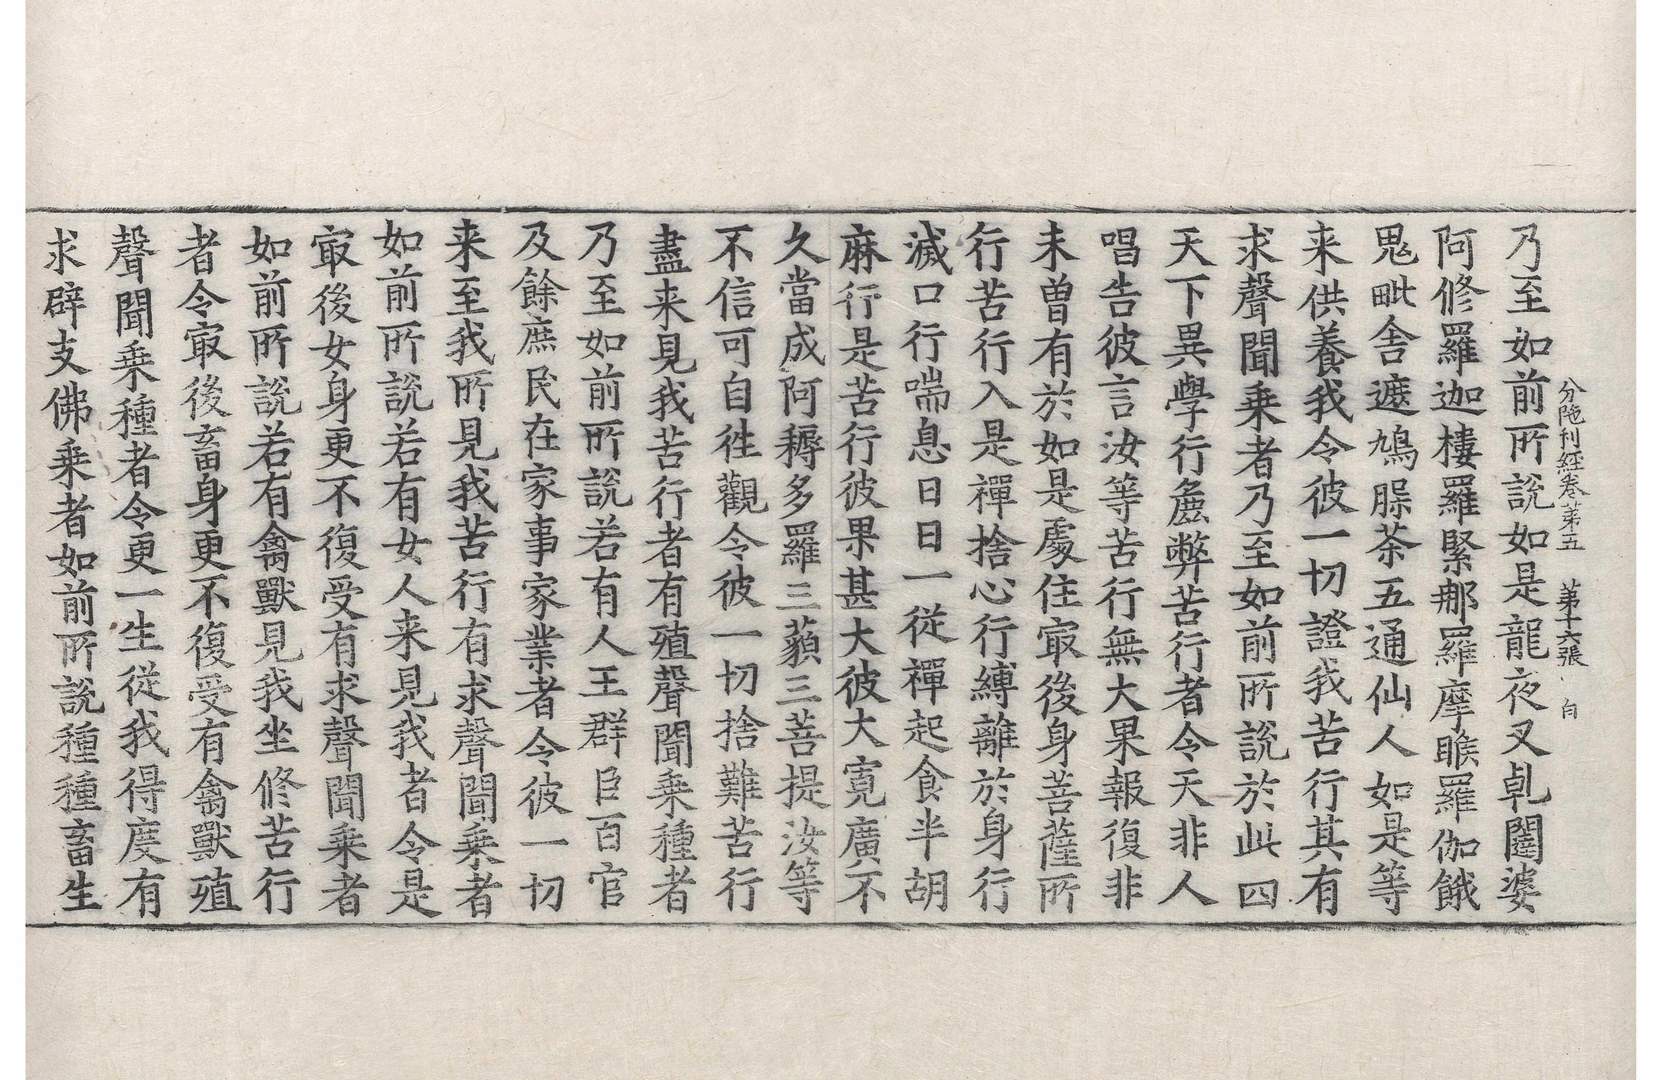 分陁利經卷第五 第十六張 白
乃至如前所說如是龍夜叉乹闥婆
阿修羅迦樓羅緊那羅摩睺羅伽餓
鬼毗舍遮鳩脲荼五通仙人如是等
来供養我令彼一切證我苦行其有
求聲聞乗者乃至如前所說於此四
天下異學行麁弊苦行者令天非人
唱告彼言汝等苦行無大果報復非
未曾有於如是處住㝡後身菩薩所
行苦行入是禪捨心行縛離於身行
滅口行喘息日日一從禪起食半胡
麻行是苦行彼果甚大彼大寛廣不
久當成阿耨多羅三藐三菩提汝等
不信可自徃觀令彼一切捨難苦行
盡来見我苦行者有殖聲聞乗種者
乃至如前所說若有人王群臣百官
及餘庶民在家事家業者令彼一切
来至我所見我苦行有求聲聞乗者
如前所說若有女人来見我者令是
㝡後女身更不復受有求聲聞乗者
如前所說若有禽獸見我坐修苦行
者令㝡後畜身更不復受有禽獸殖
聲聞乗種者令更一生從我得度有
求辟支佛乗者如前所說種種畜生